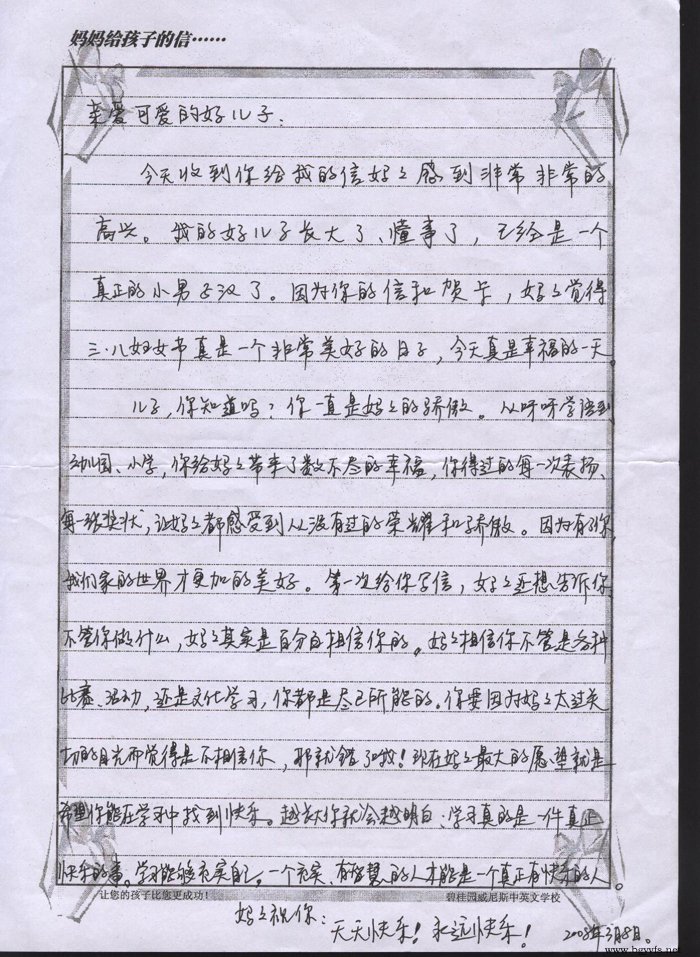 妈妈给孩子的信……
亲爱可爱的好儿子：
今天收到你给我的信妈妈感到非常非常的
高兴。我的好儿子长大了、懂事了，已经是一个
真正的小男子汉了。因为你的信和贺卡，妈妈觉得
三·八妇女节真是一个非常美好的日子，今天真是幸福的一天。
儿子，你知道吗？你一直是妈妈的骄傲。从呀呀学语到
幼儿园、小学，你给妈妈带来了数不尽的幸福，你得过的每一次表扬、
每一张奖状，让妈妈都感受到从没有过的荣耀和骄傲。因为有你，
我们家的世界才更加的美好。第一次给你写信，妈妈还想告诉你
不管你做什么，妈妈其实是百分百相信你的。妈妈相信你不管是各种
比赛、活动，还是文化学习，你都是尽己所能的。你要因为妈妈太过关
切的目光而觉得是不相信你，那就错了哦！现在妈妈最大的愿望就是
希望你能在学习中找到快乐。越长大你就会越明白：学习真的是一件真正
快乐的事。学习能够充实自己。一个充实、有智慧的人才能是一个真正有快乐的人。
让您的孩子比您更成功！ 碧桂园威尼斯中英文学校
妈妈祝你：
天天快乐！永远快乐！ 2008年3月8日。
www.bgyvfs.net